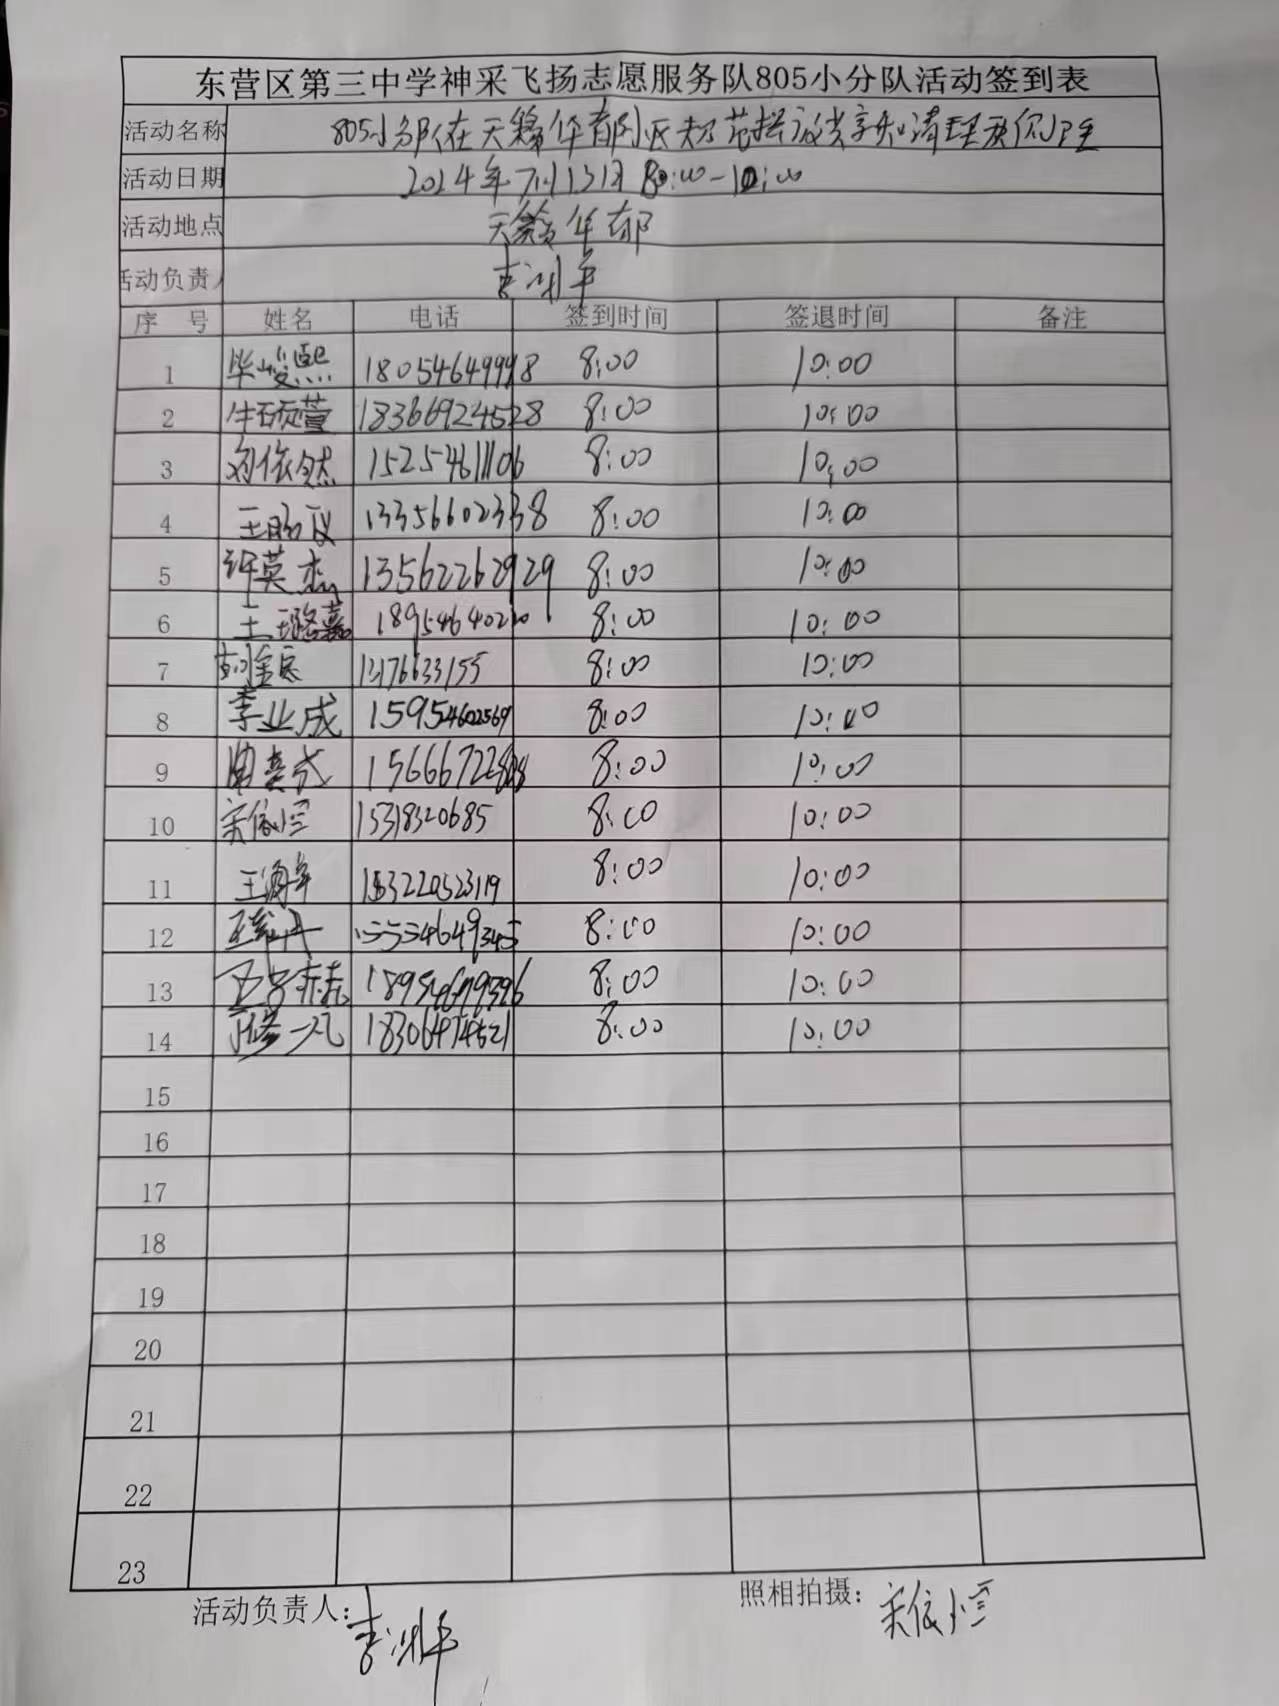 东营区第三中学神采飞扬志愿服务队805小分队活动签到表
活动名称 805小分队在天籁华都小区 共享 清理
活动日期 2024年7月13日 8:00-10:00
活动地点 天籁华都
活动负责人
序 号 姓名 电话 签到时间 签退时间 备注
1 毕竣熙 18054649998 8:00 10:00
2 牛硕萱 18366924528 8:00 10:00
3 刘依然 15254611106 8:00 10:00
4 13356602338 8:00 10:00
5 许英杰 13562262929 8:00 10:00
6 王璐嘉 18954640210 8:00 10:00
7 8:00 10:00
8 李业成 15954602569 8:00 10:00
9 8:00 10:00
10 宋依恒 15318320685 8:00 10:00
11 8:00 10:00
12 8:00 10:00
13 8:00 10:00
14 18306474521 8:00 10:00
15
16
17
18
19
20
21
22
23
活动负责人:
照相拍摄: 宋依恒